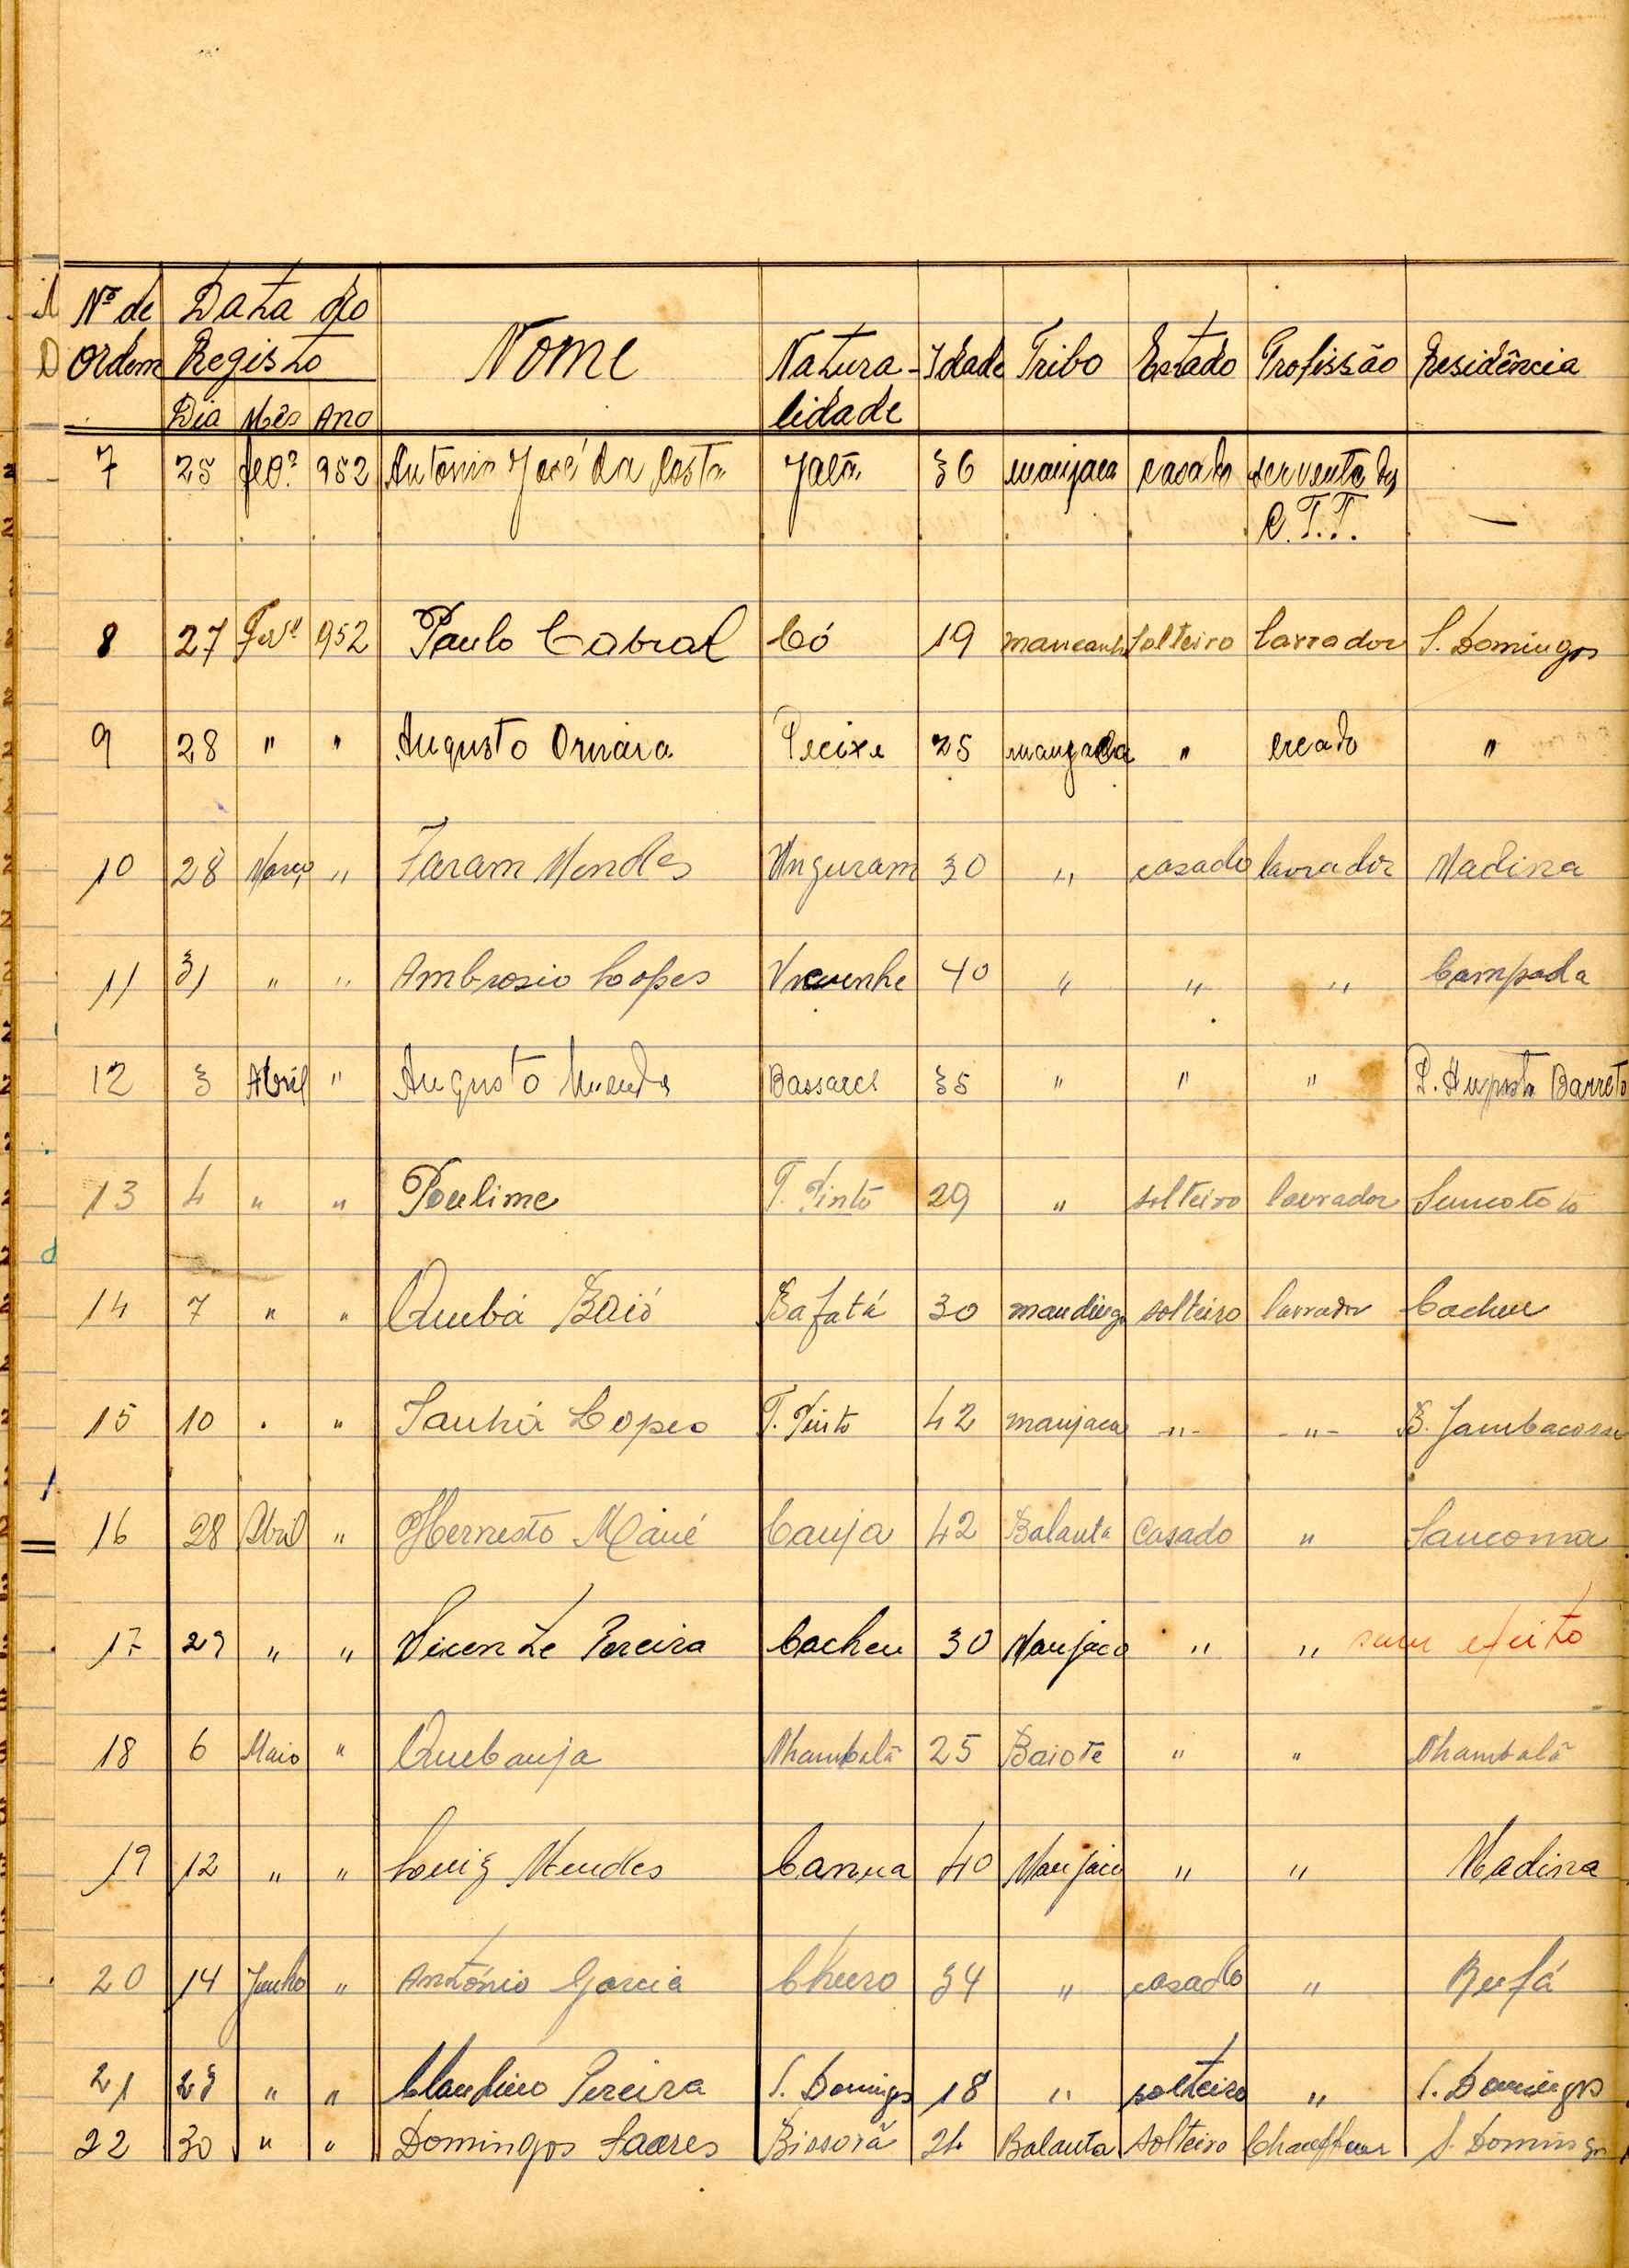 Nº de Data do
Ordem Registo Nome Natura- Idade Tribo Estado Profissão Residência
Dia Mês Ano lidade
7 25 952 António José da Costa Jatá 36 manjaca casado servente dos —
C.T.T.
8 27 952 Paulo Cabral Có 19 mancanh solteiro lavrador S. Domingos
9 28 " " Augusto Peixe 25 manjaca " creado "
10 28 Março " Faram Mendes Unguram 30 " casado lavrador Madina
11 31 " " Ambrosio Lopes 40 " " " Campada
12 3 Abril " Augusto Bassarel 35 " " " P. Augusto Barreto
13 4 " " Paulime T. Pinto 29 " solteiro lavrador
14 7 " " Quebá Baió Bafatá 30 mandinga solteiro lavrador Cacheu
15 10 " " Sanhá Lopes T. Pinto 42 manjaca -"- -"- B. Jambacosse
16 28 Abril " Hernesto Mané Canja 42 Balanta Casado " Sancoma
17 29 " " Vicente Pereira Cacheu 30 Manjaco " " sem efeito
18 6 Maio " Quebanja Nhambalã 25 Baiote " " Nhambalã
19 12 " " Luiz Mendes Canua 40 Manjaco " " Madina
20 14 Junho " António Garcia Churo 34 " casado " Bufá
21 23 " " Claudino Pereira S. Domingos 18 " solteiro " S. Domingos
22 30 " " Domingos Soares Bissorã 24 Balanta solteiro Chauffeur S. Domingos